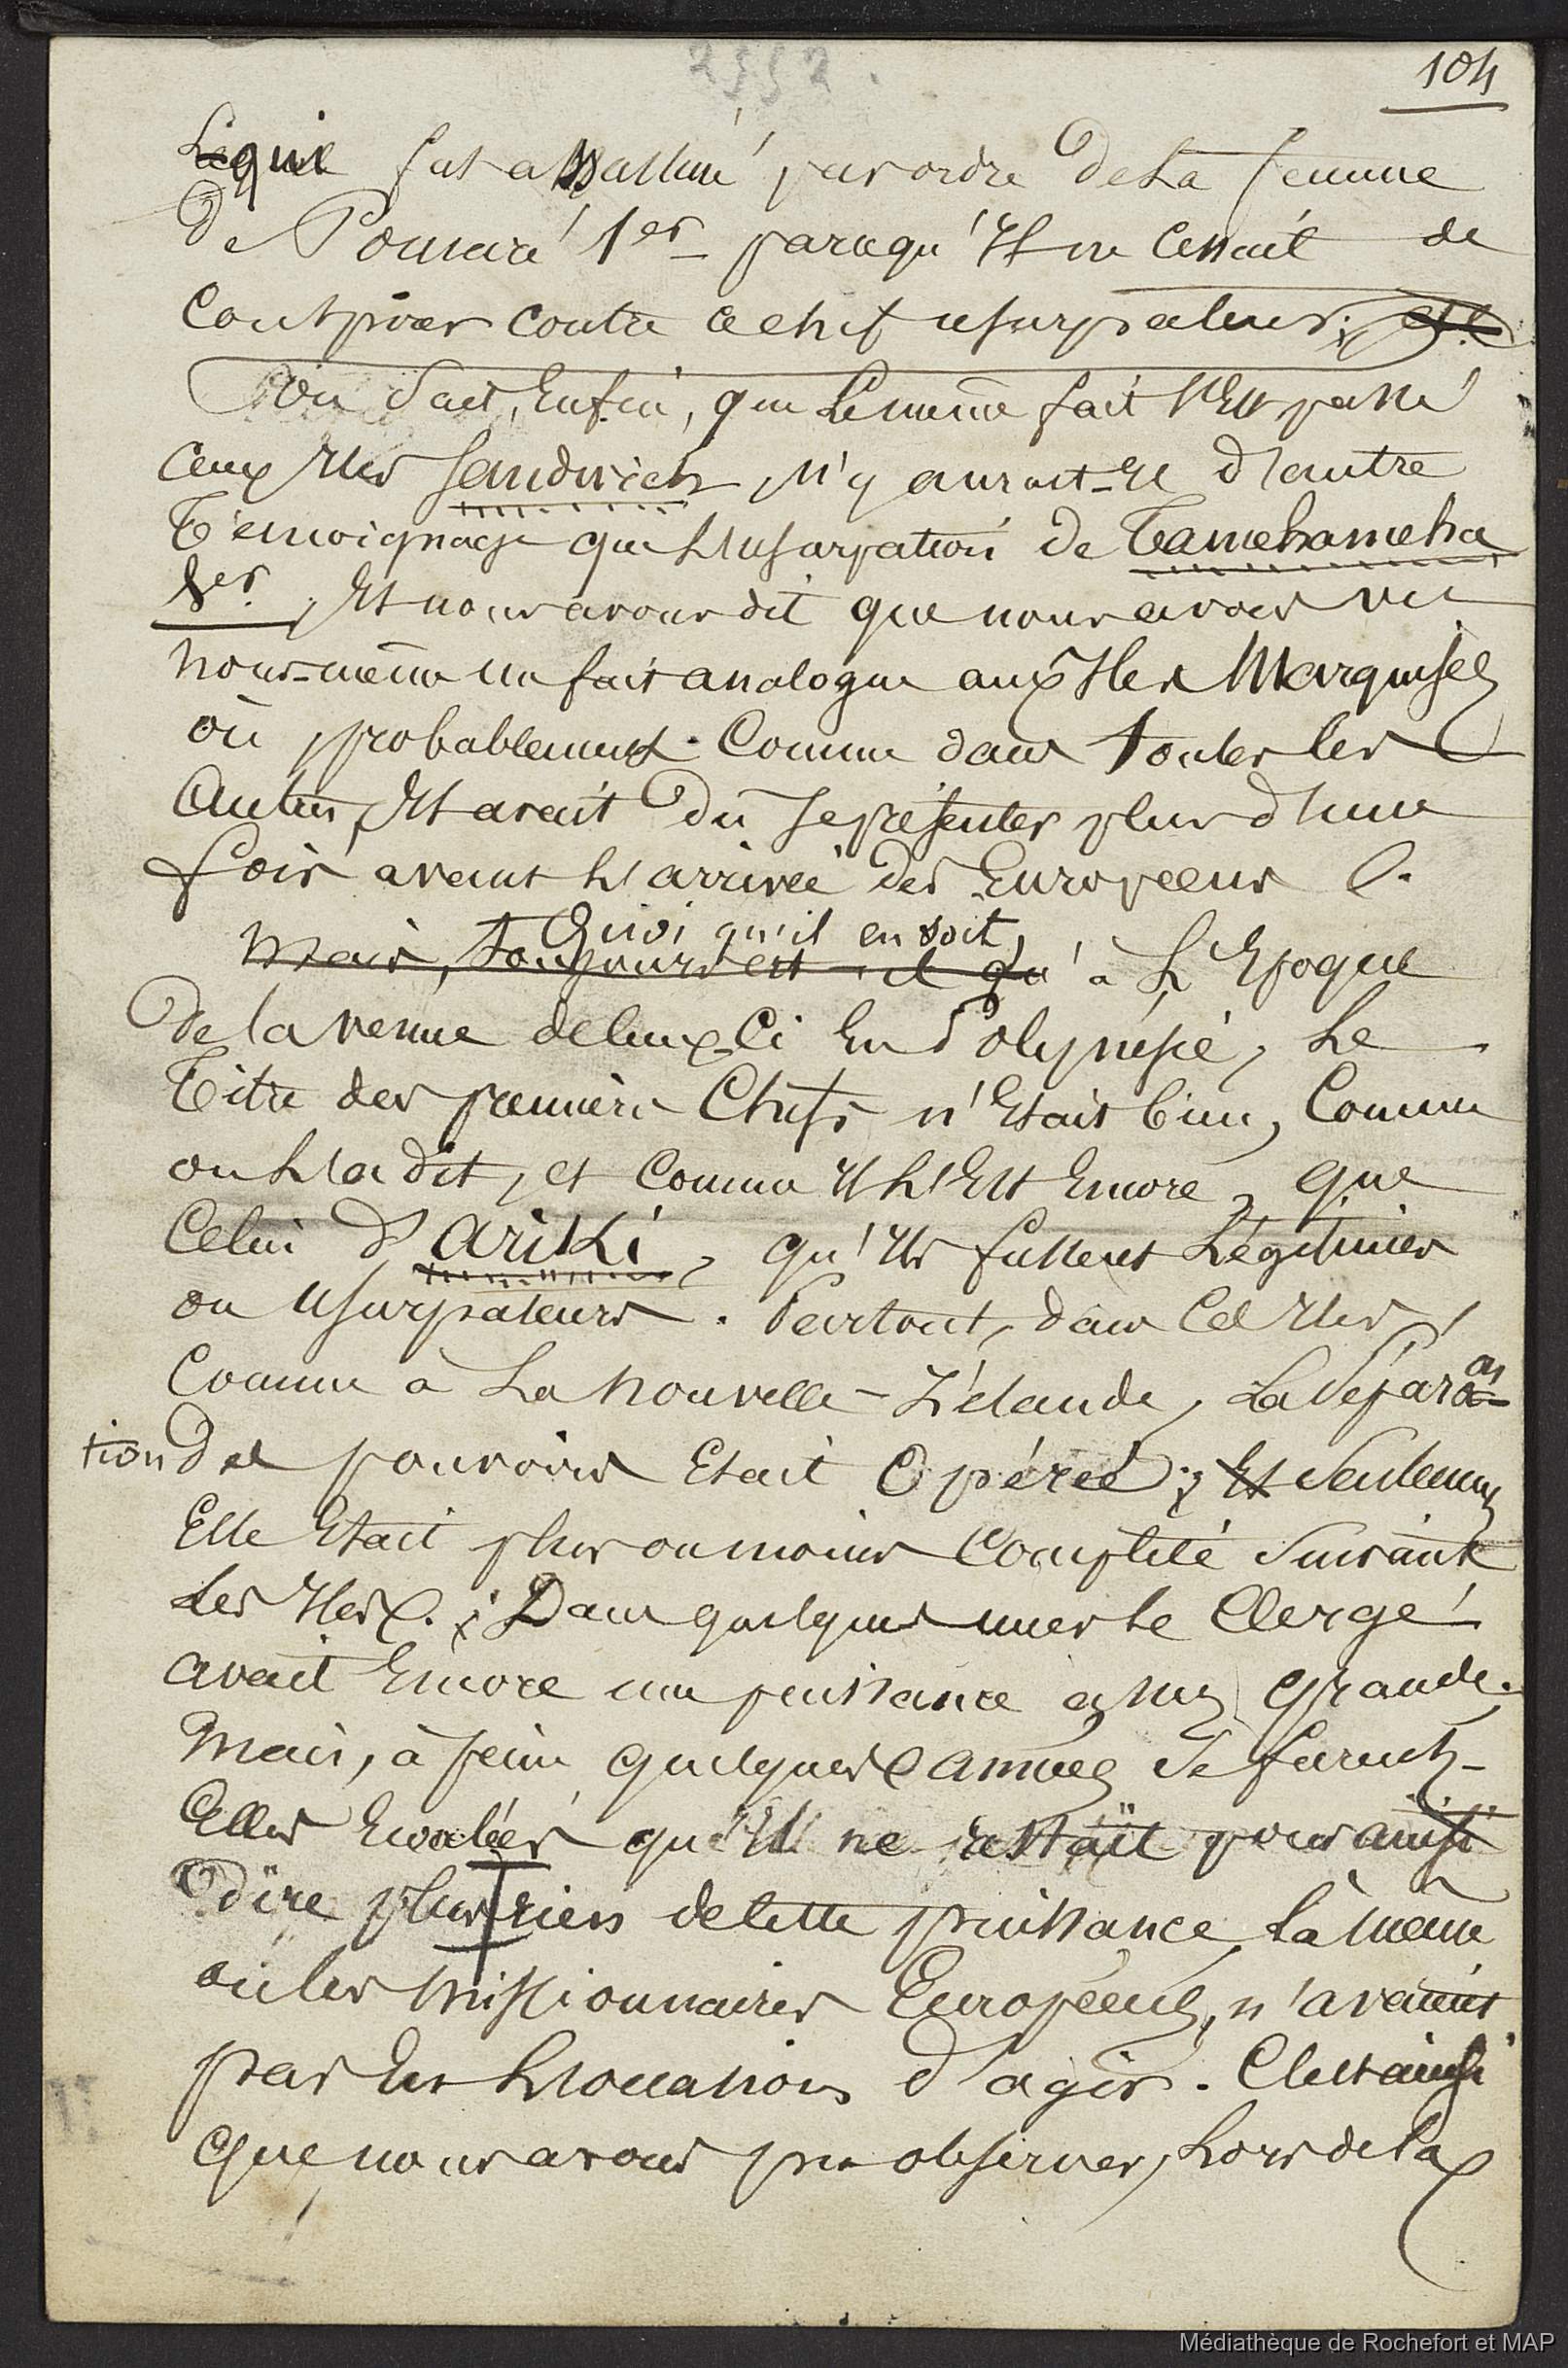 2552.
104
Lequel qui fut assassiné par ordre de la femme
De Pomaré 1er parcequ'Il ne Cessait de
Conspirer contre ce chef usurpateur; et
On Sait, Enfin, que Le même fait s'Est passé
aux Iles Sandwich, N'y aurait-Il d'autre
Témoignage que L'Usurpation de Tamehameha
1er. Et nous avons dit que nous avons vu
nous-même un fait analogue aux Iles Marquises
où, probablement Comme dans toutes les
Autres, Il avait Dû Se présenter plus d'une
fois avant L'arrivée des Européens.
Quoi qu'il en soit,
Mais, toujours est-il qu'à L'Epoque
De la venue de Ceux-Ci En Polynésie, Le
Titre des premiers Chefs n'Etait bien, Comme
on L'a dit, et Comme Il L'Est Encore, que
Celui d'Ariki, qu'Ils fussent Légitimes
ou Usurpateurs. Partout, dans Ces Iles,
Comme à La Nouvelle-Zélande, La Sépara-
tion Des pouvoirs Etait Opérée; Et Seulement
Elle Etait plus ou moins Complète Suivant
Les Iles. Dans quelques unes Le Clergé
avait Encore une puissance assez Grande.
Mais, à peine quelques années Se furent-
Elles Ecoulées qu'Il ne restait pour ainsi
Dire plus rien de Cette puissance, Là même
où les Missionnaires Européens, n'avaient
pas Eu L'occasion d'agir. C'Est ainsi
que nous avons pu observer, Lors de La
Médiathèque de Rochefort et MAP